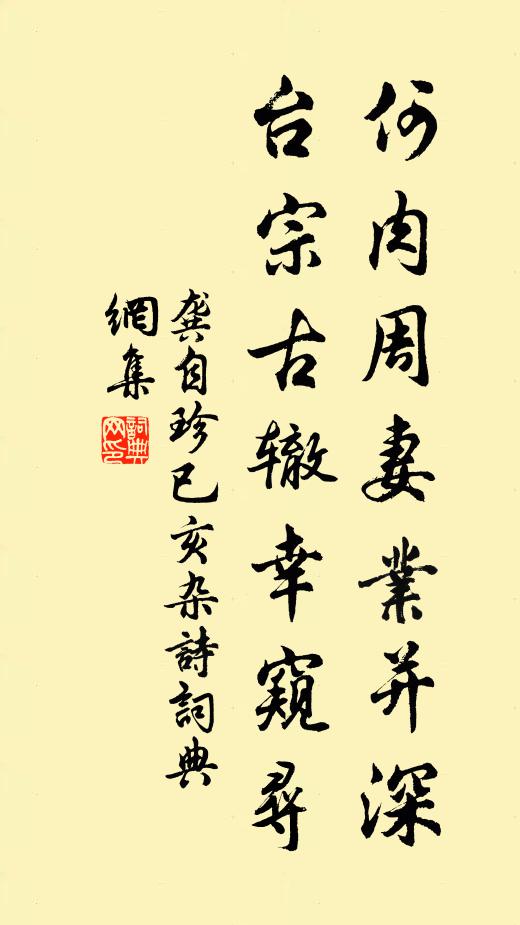 何肉周妻業并深
台宗古辙幸窺尋
龔自珍己亥杂詩詞典
網集
詞典
网印